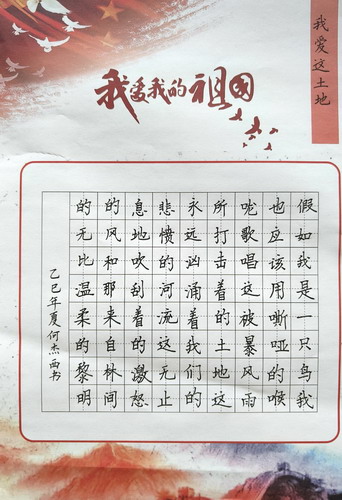 我爱这土地
我爱我的祖国
假如我是一只鸟我
也应该用嘶哑的喉
咙歌唱这被暴风雨
所打击着的土地这
永远汹涌着我们的
悲愤的河流这无止
息地吹刮着的激怒
的风和那来自林间
的无比温柔的黎明
乙巳年夏何杰西书